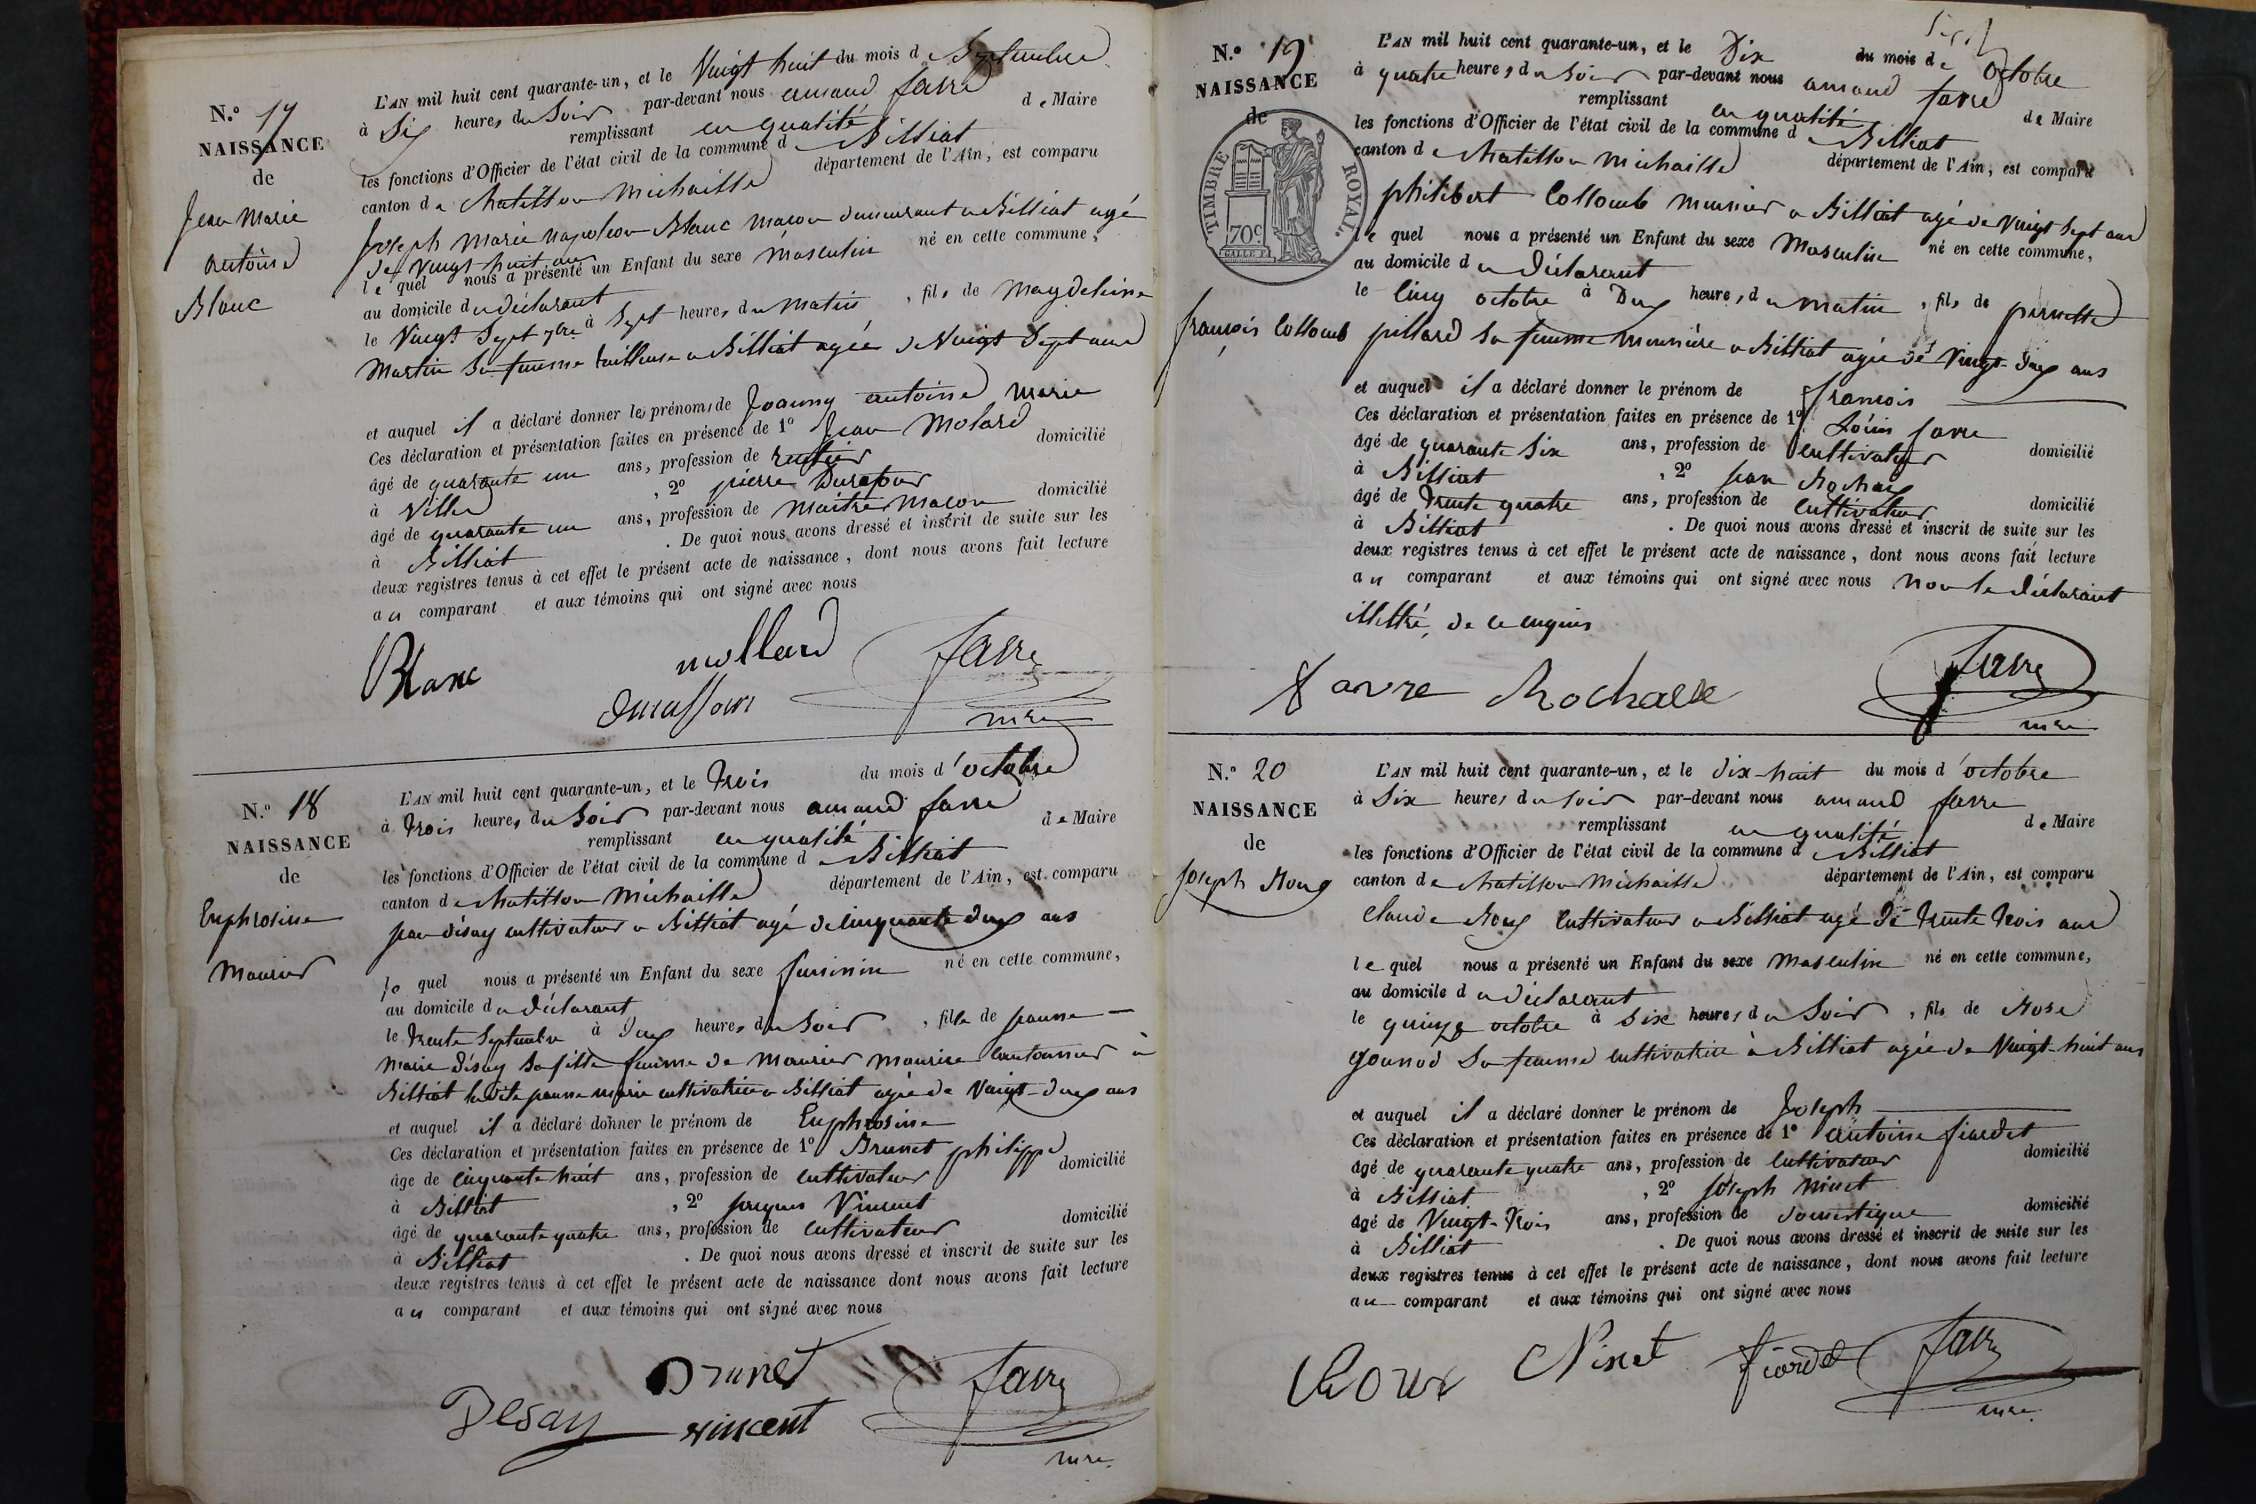 N.° 17
NAISSANCE
de
Jean Marie
antoine
Blanc
L'AN mil huit cent quarante-un, et le Vingt huit du mois de Septembre
à Six heures du Soir par-devant nous amand favre
remplissant en qualité de Maire
les fonctions d'Officier de l'état civil de la commune de Billiat
canton de Chatillon Michaille département de l'Ain, est comparu
Joseph Marie napoleon Blanc Macon demeurant a Billiat agé
de Vingt huit ans
le quel nous a présenté un Enfant du sexe masculin né en cette commune,
au domicile du déclarant
le Vingt Sept 7bre à Sept heures du Matin, fils de Magdeleine
Martin Sa femme tailleuse a Billiat agée de Vingt Sept ans
et auquel il a déclaré donner les prénoms de Joanny antoine Marie
Ces déclaration et présentation faites en présence de 1° Jean Molard
âgé de quarante un ans, profession de rentier domicilié
à Ville, 2° pierre Durafour
âgé de quarante un ans, profession de Maitre Macon domicilié
à Billiat. De quoi nous avons dressé et inscrit de suite sur les
deux registres tenus à cet effet le présent acte de naissance, dont nous avons fait lecture
au comparant et aux témoins qui ont signé avec nous
Blanc mollard favre
duraffour mre
N.° 18
NAISSANCE
de
Euphrosine
Maurier
L'AN mil huit cent quarante-un, et le Trois du mois d'octobre
à Trois heures du Soir par-devant nous amand favre
remplissant en qualité de Maire
les fonctions d'Officier de l'état civil de la commune de Billiat
canton de Chatillon Michaille département de l'Ain, est comparu
jean désay cultivateur a Billiat agé de Cinquante deux ans
le quel nous a présenté un Enfant du sexe feminin né en cette commune,
au domicile du déclarant
le Trente Septembre à Deux heures du Soir, fille de jeanne
Marie désay Sa fille femme de Maurier Maurice Cantonnier à
Billiat la dite jeanne marie cultivatrice a Billiat agée de Vingt-deux ans
et auquel il a déclaré donner le prénom de Euphrosine
Ces déclaration et présentation faites en présence de 1° Brunet philippe
âgé de Cinquante huit ans, profession de Cultivateur domicilié
à Billiat, 2° Jacques Vincent
âgé de quarante quatre ans, profession de Cultivateur domicilié
à Billiat. De quoi nous avons dressé et inscrit de suite sur les
deux registres tenus à cet effet le présent acte de naissance dont nous avons fait lecture
au comparant et aux témoins qui ont signé avec nous
Brunet favre
Desay vincent
mre
N.° 19
NAISSANCE
de
TIMBRE ROYAL
70c
françois Collomb
L'AN mil huit cent quarante-un, et le Dix du mois de Octobre
à quatre heures du Soir par-devant nous amand favre
remplissant en qualité de Maire
les fonctions d'Officier de l'état civil de la commune de Billiat
canton de Chatillon Michaille département de l'Ain, est comparu
philibert Collomb meunier a Billiat agé de Vingt Sept ans
le quel nous a présenté un Enfant du sexe Masculin né en cette commune,
au domicile du déclarant
le Cinq octobre à Deux heures du matin, fils de pernette
pillard Sa femme Meunière a Billiat agée de Vingt-deux ans
et auquel il a déclaré donner le prénom de françois
Ces déclaration et présentation faites en présence de 1° Loüis favre
âgé de quarante Six ans, profession de Cultivateur domicilié
à Billiat, 2° jean Rochaix
âgé de Trente quatre ans, profession de Cultivateur domicilié
à Billiat. De quoi nous avons dressé et inscrit de suite sur les
deux registres tenus à cet effet le présent acte de naissance, dont nous avons fait lecture
au comparant et aux témoins qui ont signé avec nous non le déclarant
illettré, de ce enquis
favre Rochaix favre
mre
N.° 20
NAISSANCE
de
Joseph Roux
L'AN mil huit cent quarante-un, et le dix-huit du mois d'octobre
à Six heures du soir par-devant nous amand favre
remplissant en qualité de Maire
les fonctions d'Officier de l'état civil de la commune de Billiat
canton de Chatillon Michaille département de l'Ain, est comparu
Claude Roux Cultivateur a Billiat agé de Trente Trois ans
le quel nous a présenté un Enfant du sexe Masculin né en cette commune,
au domicile du déclarant
le quinze octobre à Six heures du Soir, fils de Rose
gounod Sa femme cultivatrice à Billiat agée de Vingt-huit ans
et auquel il a déclaré donner le prénom de Joseph
Ces déclaration et présentation faites en présence de 1° antoine fiardet
âgé de quarante quatre ans, profession de Cultivateur domicilié
à Billiat, 2° Joseph Ninet
âgé de Vingt-Trois ans, profession de domestique domicilié
à Billiat. De quoi nous avons dressé et inscrit de suite sur les
deux registres tenus à cet effet le présent acte de naissance, dont nous avons fait lecture
au comparant et aux témoins qui ont signé avec nous
Roux Ninet fiardet favre
mre